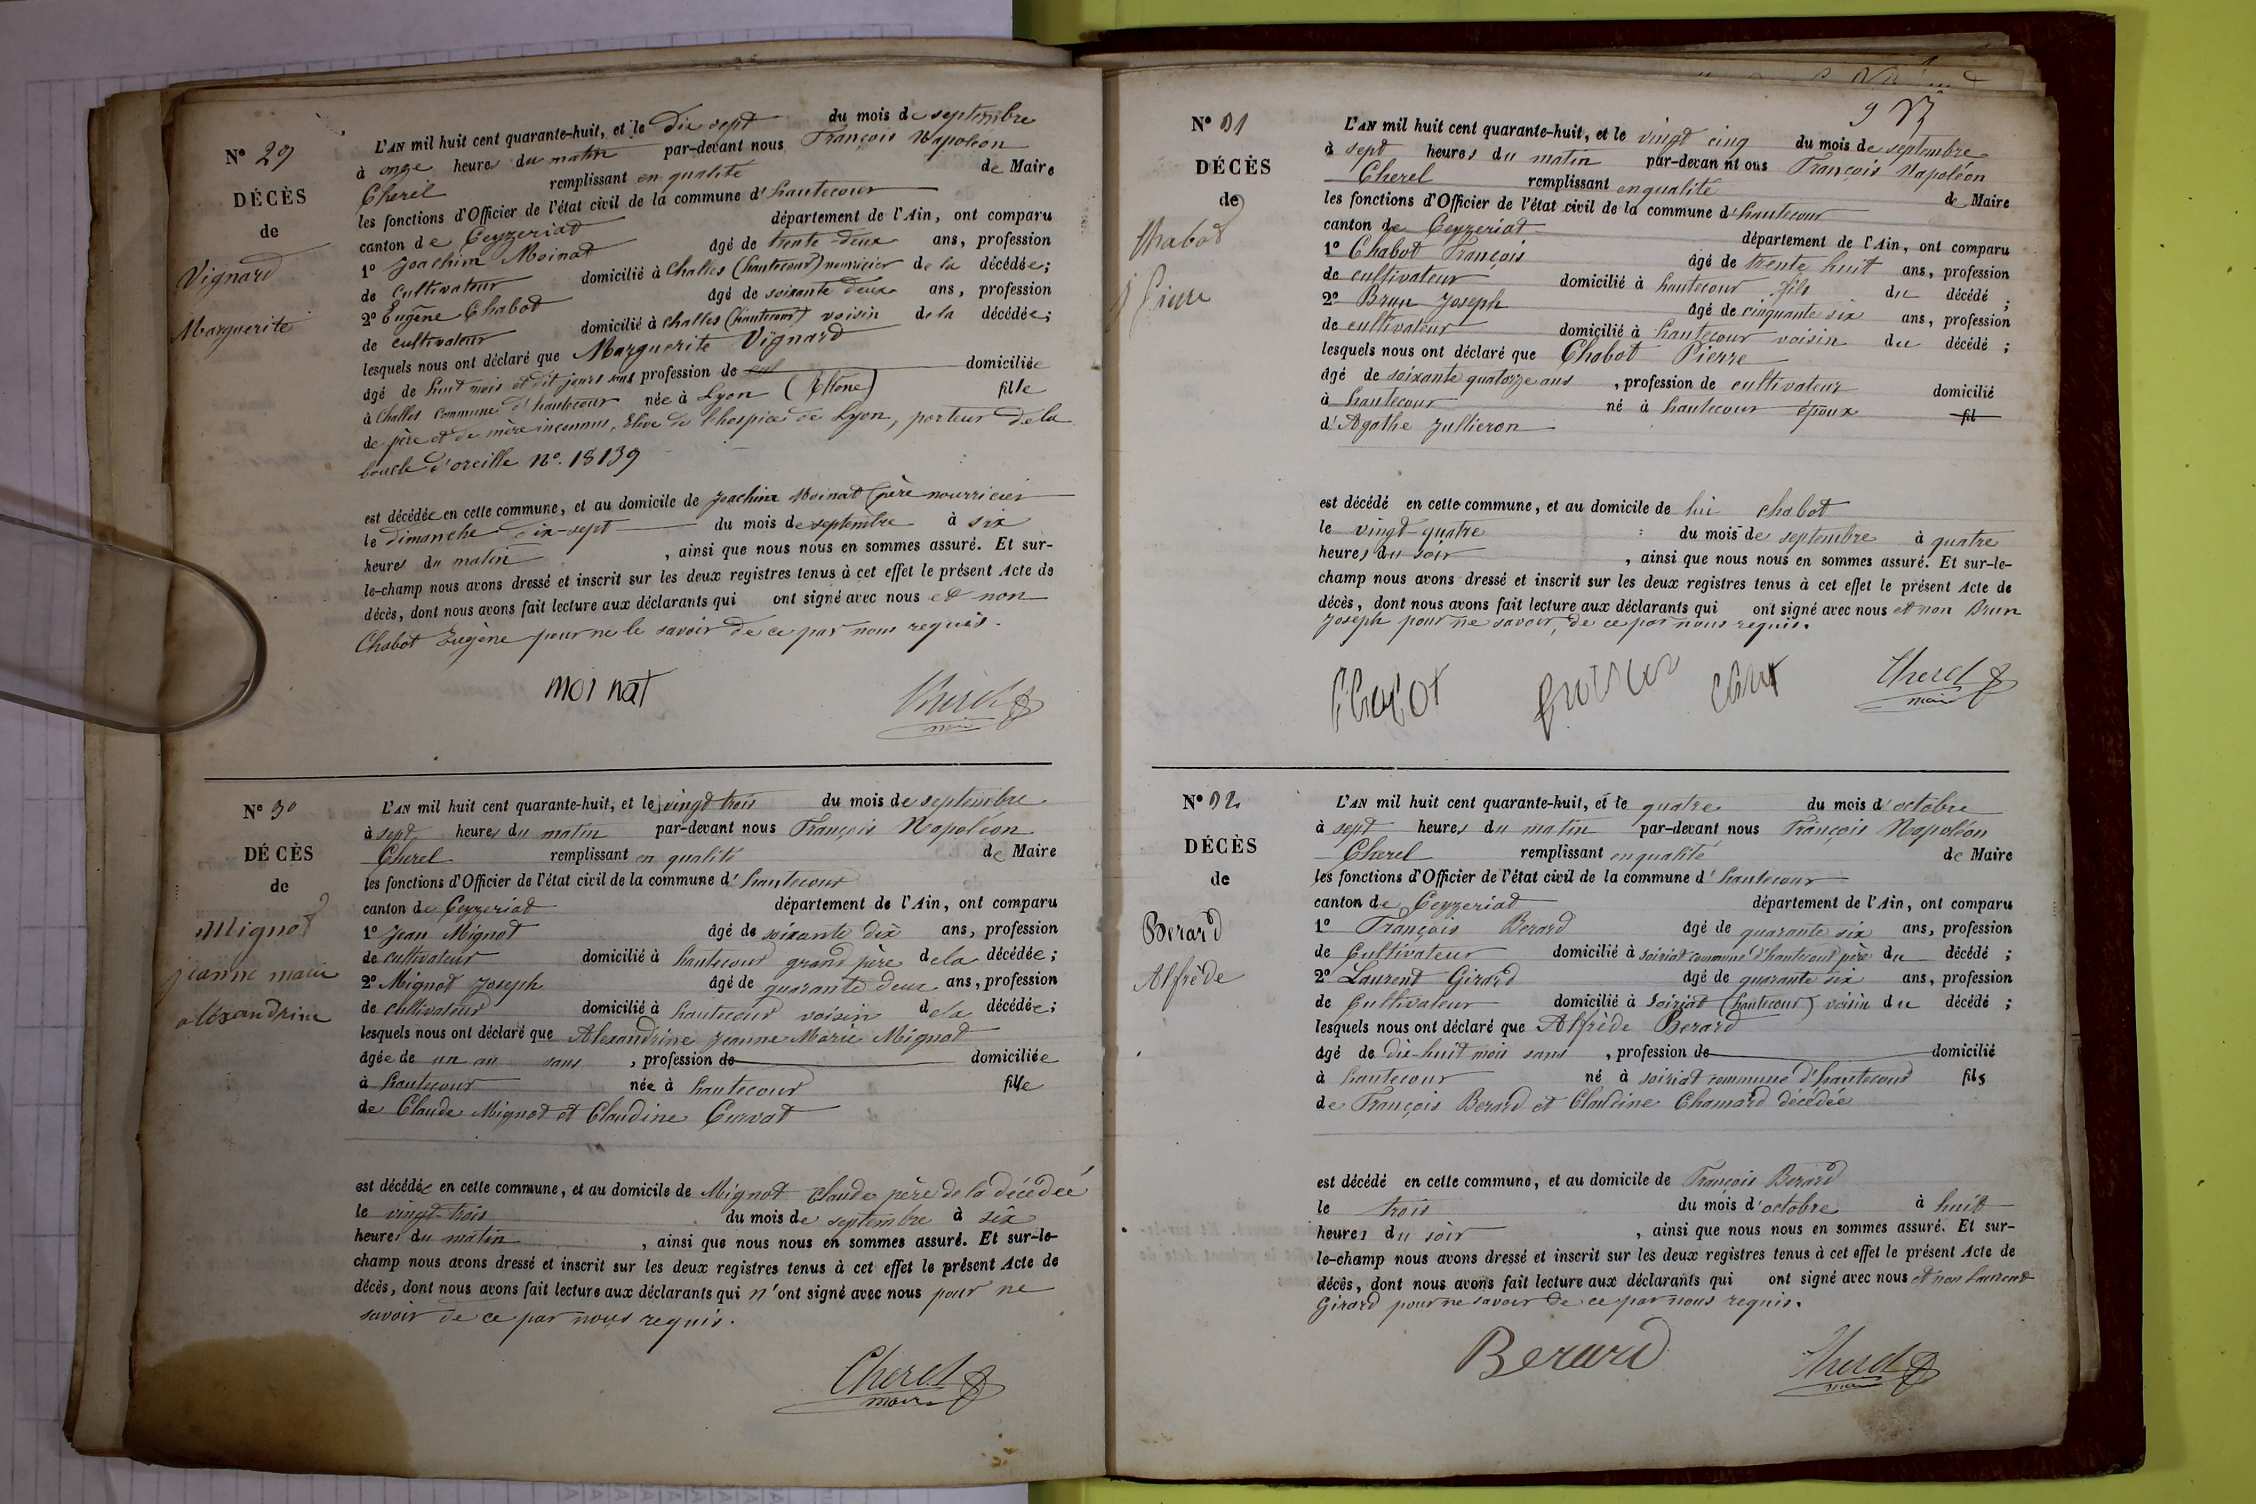 N° 29
DÉCÈS
de
Vignard
Marguerite
L'AN mil huit cent quarante-huit, et le dix sept du mois de septembre
à onze heures du matin par-devant nous François Napoléon
Cherel remplissant en qualité de Maire
les fonctions d'Officier de l'état civil de la commune d'hautecour
canton de Ceyzeriat département de l'Ain, ont comparu
1° Joachim Moinat âgé de trente-deux ans, profession
de cultivateur domicilié à Challes (hautecour) nourricier de la décédée;
2° Eugène Chabot âgé de soixante deux ans, profession
de cultivateur domicilié à Challes (hautecour) voisin de la décédée;
lesquels nous ont déclaré que Marguerite Vignard
âgé de huit mois et dix jours sans profession de domiciliée
à Challes commune d'hautecour née à Lyon (Rhône) fille
de père et de mère inconnus, Elève de l'hospice de Lyon, porteur de la
boucle d'oreille N°. 18139
est décédée en cette commune, et au domicile de Joachim Moinat (père nourricier
le dimanche dix-sept du mois de septembre à six
heures du matin , ainsi que nous nous en sommes assuré. Et sur-
le-champ nous avons dressé et inscrit sur les deux registres tenus à cet effet le présent Acte de
décès, dont nous avons fait lecture aux déclarants qui ont signé avec nous et non
Chabot Eugène pour ne le savoir de ce par nous requis.
moinat Cherel
maire
N° 30
DÉCÈS
de
Mignot
jeanne marie
alexandrine
L'AN mil huit cent quarante-huit, et le vingt trois du mois de septembre
à sept heures du matin par-devant nous François Napoléon
Cherel remplissant en qualité de Maire
les fonctions d'Officier de l'état civil de la commune d'hautecour
canton de Ceyzeriat département de l'Ain, ont comparu
1° Jean Mignot âgé de soixante dix ans, profession
de cultivateur domicilié à hautecour grand père de la décédée;
2° Mignot Joseph âgé de quarante deux ans, profession
de cultivateur domicilié à hautecour voisin de la décédée;
lesquels nous ont déclaré que Alexandrine Jeanne Marie Mignot
âgée de un an sans , profession de domiciliée
à hautecour née à hautecour fille
de Claude Mignot et Claudine Curvat
est décédée en cette commune, et au domicile de Mignot Claude père de la décédée
le vingt-trois du mois de septembre à six
heures du matin , ainsi que nous nous en sommes assuré. Et sur-le-
champ nous avons dressé et inscrit sur les deux registres tenus à cet effet le présent Acte de
décès, dont nous avons fait lecture aux déclarants qui n'ont signé avec nous pour ne
savoir de ce par nous requis.
Cherel
maire
N° 31
DÉCÈS
de
Chabot
Pierre
L'AN mil huit cent quarante-huit, et le vingt cinq du mois de septembre
à sept heures du matin par-devan nt ous François Napoléon
Cherel remplissant en qualité de Maire
les fonctions d'Officier de l'état civil de la commune d'hautecour
canton de Ceyzeriat département de l'Ain, ont comparu
1° Chabot François âgé de trente huit ans, profession
de cultivateur domicilié à hautecour fils du décédé ;
2° Brun Joseph âgé de cinquante six ans, profession
de cultivateur domicilié à hautecour voisin du décédé ;
lesquels nous ont déclaré que Chabot Pierre
âgé de soixante quatorze ans , profession de cultivateur domicilié
à hautecour né à hautecour époux fil
d'Agathe Jullieron
est décédé en cette commune, et au domicile de lui Chabot
le vingt-quatre du mois de septembre à quatre
heures du soir , ainsi que nous nous en sommes assuré. Et sur-le-
champ nous avons dressé et inscrit sur les deux registres tenus à cet effet le présent Acte de
décès, dont nous avons fait lecture aux déclarants qui ont signé avec nous et non Brun
Joseph pour ne savoir, de ce par nous requis.
Chabot Cherel
maire
N° 32
DÉCÈS
de
Berard
Alfrède
L'AN mil huit cent quarante-huit, et le quatre du mois d'octobre
à sept heures du matin par-devant nous François Napoléon
Cherel remplissant en qualité de Maire
les fonctions d'Officier de l'état civil de la commune d'hautecour
canton de Ceyzeriat département de l'Ain, ont comparu
1° François Berard âgé de quarante six ans, profession
de Cultivateur domicilié à soiriat commune d'hautecour père du décédé ;
2° Laurent Girard âgé de quarante six ans, profession
de Cultivateur domicilié à Soiriat (hautecour) voisin du décédé ;
lesquels nous ont déclaré que Alfrède Berard
âgé de dix-huit mois sans , profession de domicilié
à hautecour né à soiriat commune d'hautecour fils
de François Berard et Claudine Chamard décédée
est décédé en cette commune, et au domicile de François Berard
le trois du mois d'octobre à huit
heures du soir , ainsi que nous nous en sommes assuré. Et sur-
le-champ nous avons dressé et inscrit sur les deux registres tenus à cet effet le présent Acte de
décès, dont nous avons fait lecture aux déclarants qui ont signé avec nous et non Laurent
Girard pour ne savoir de ce par nous requis.
Berard Cherel
maire